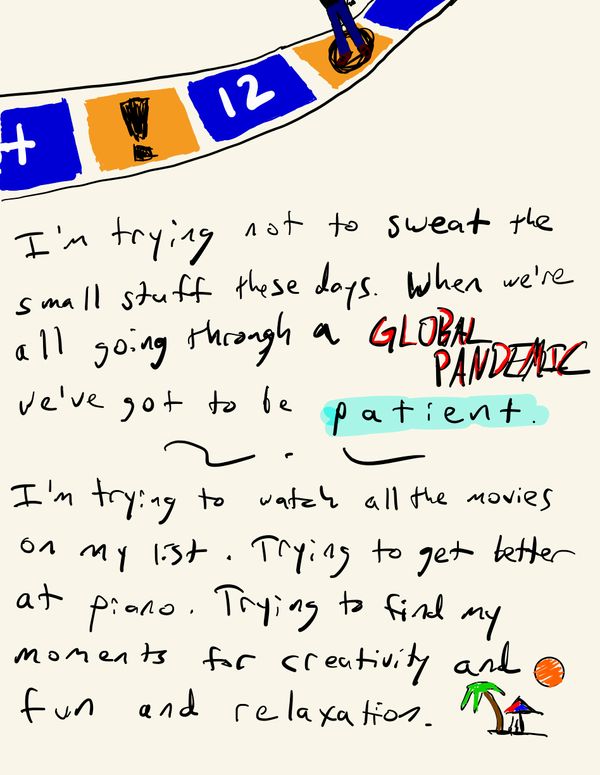 + ! 12
I'm trying not to sweat the
small stuff these days. When we're
all going through a GLOBAL
PANDEMIC
we've got to be patient.
I'm trying to watch all the movies
on my list. Trying to get better
at piano. Trying to find my
moments for creativity and
fun and relaxation.